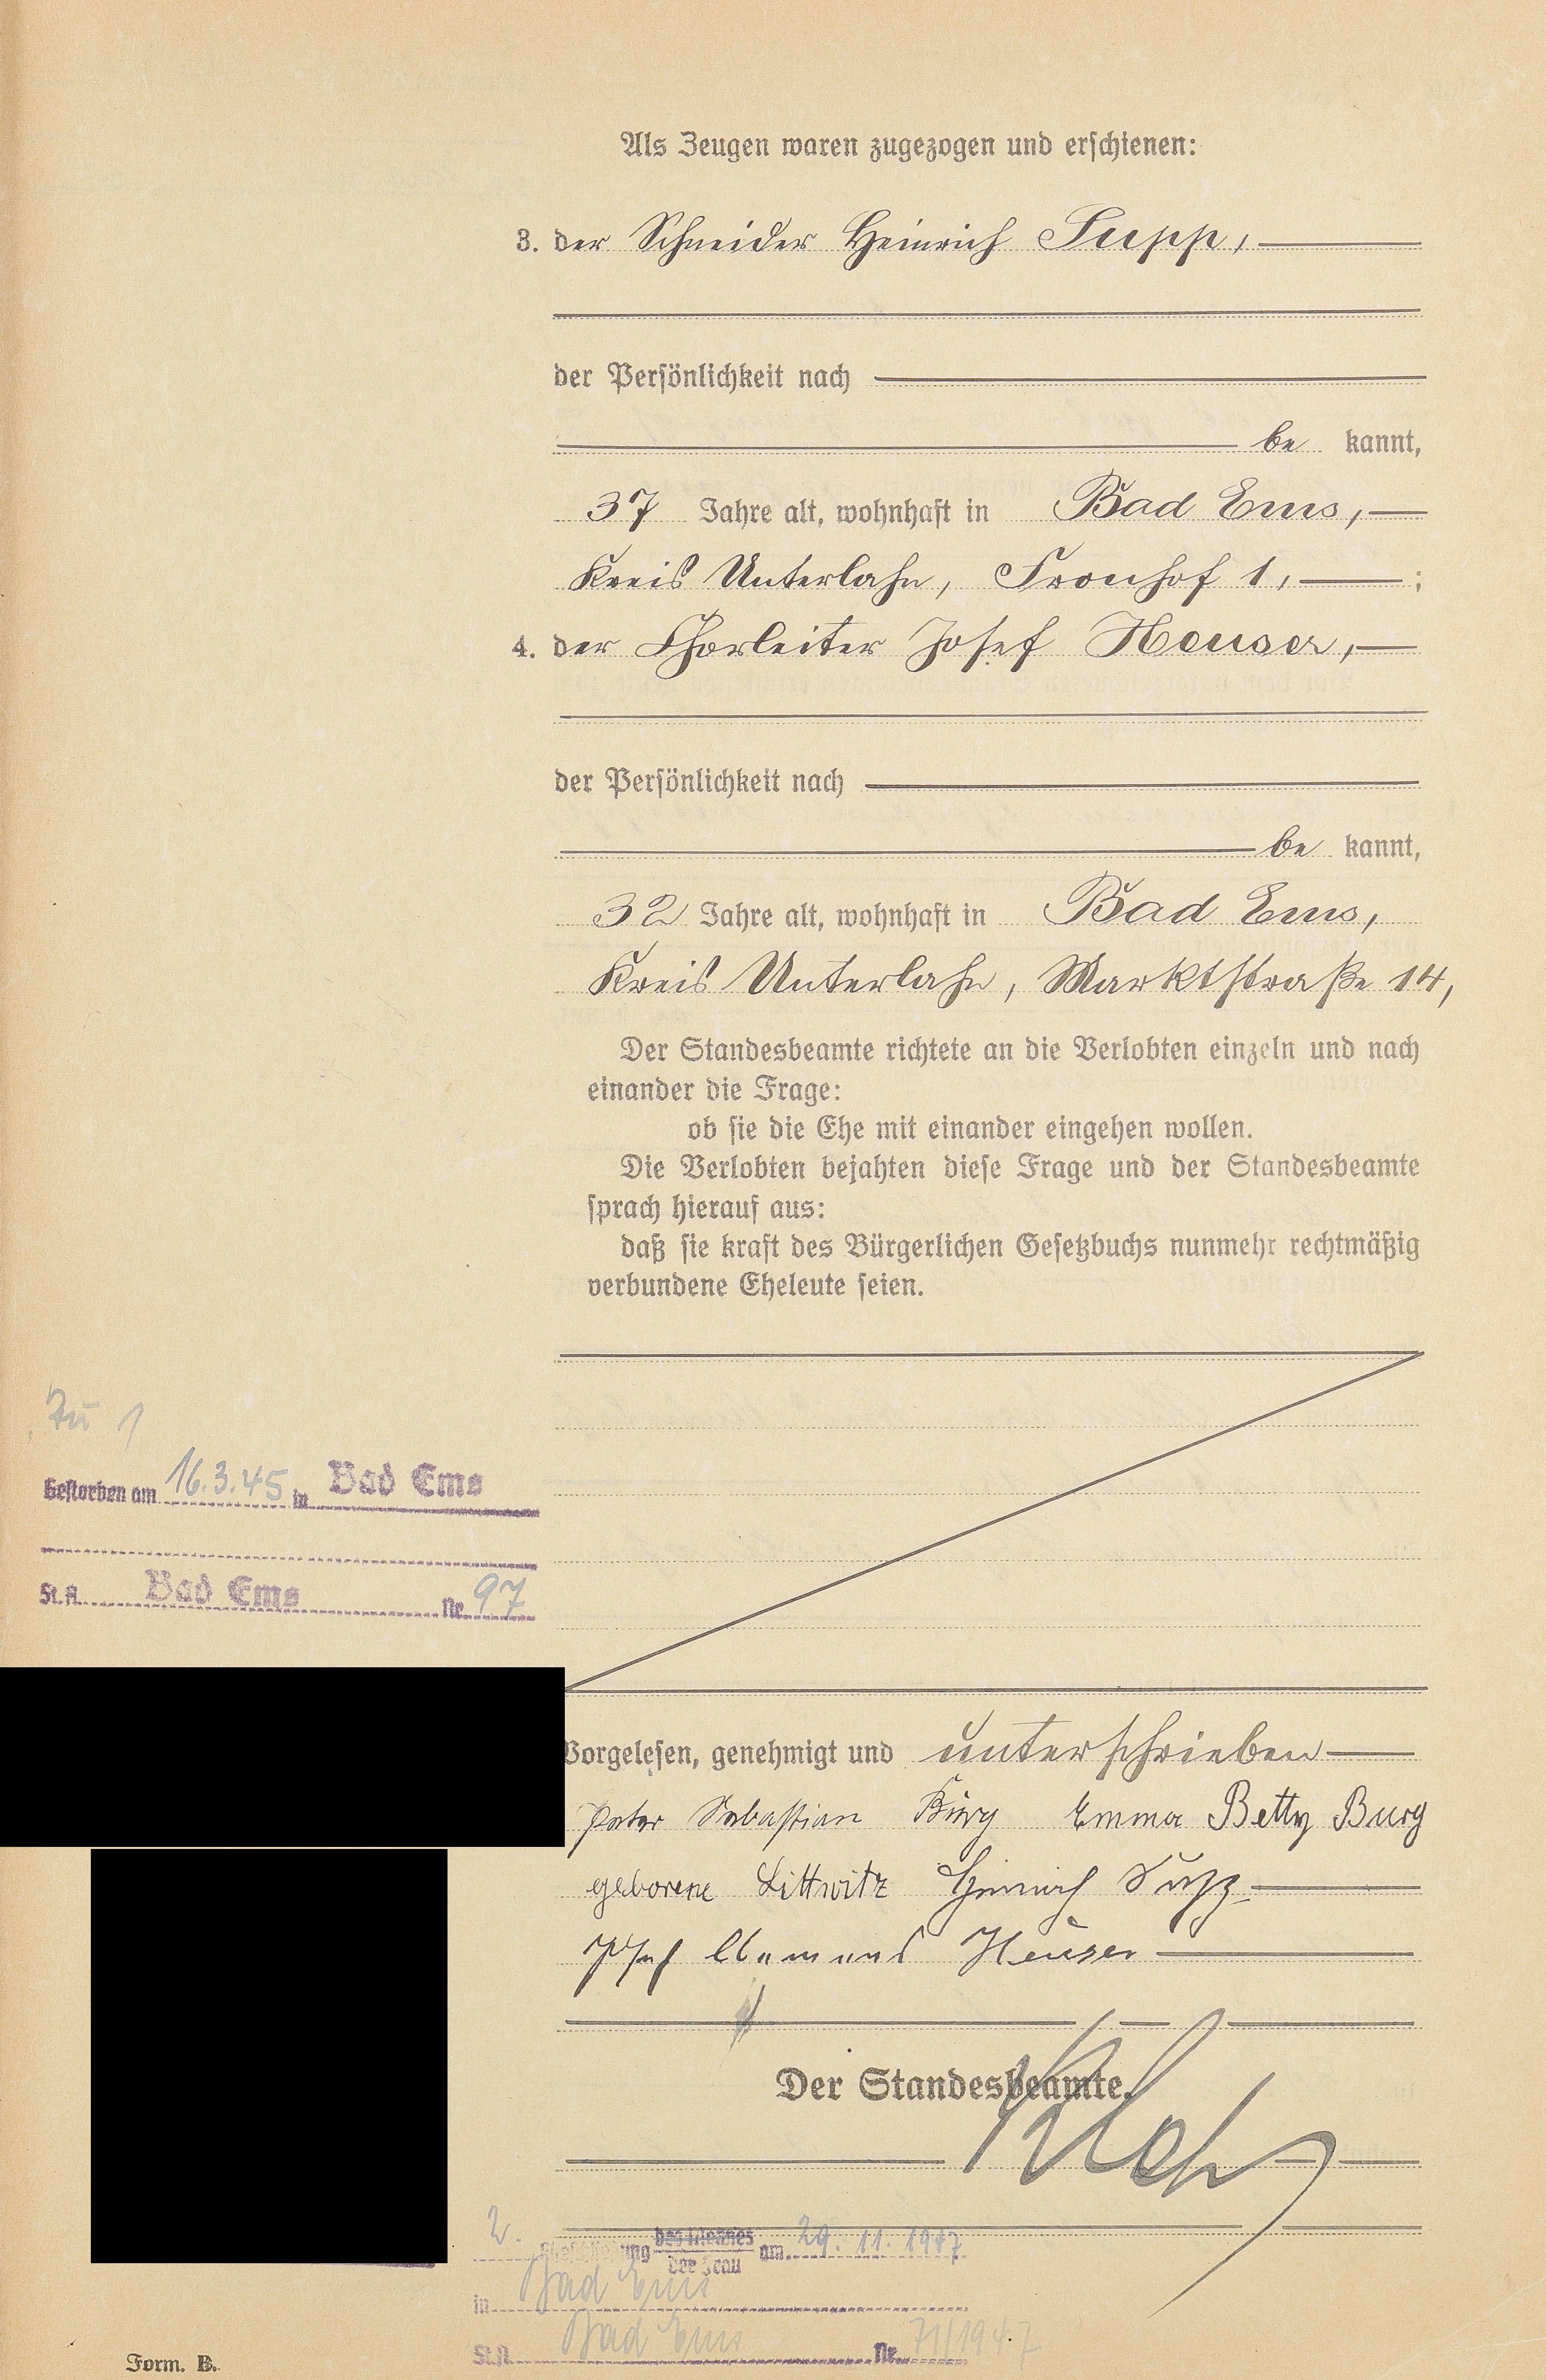 Als Zeugen waren zugezogen und erschienen:
3. der Schneider Heinrich Supp,
der Persönlichkeit nach
be kannt,
37 Jahre alt, wohnhaft in Bad Ems,
Kreis Unterlahn, Fronhof 1, ;
4. der Chorleiter Josef Heuser,
der Persönlichkeit nach
be kannt,
32 Jahre alt, wohnhaft in Bad Ems,
Kreis Unterlahn, Marktstraße 14,
Der Standesbeamte richtete an die Verlobten einzeln und nach
einander die Frage:
ob sie die Ehe mit einander eingehen wollen.
Die Verlobten bejahten diese Frage und der Standesbeamte
sprach hierauf aus:
daß sie kraft des Bürgerlichen Gesetzbuchs nunmehr rechtmäßig
verbundene Eheleute seien.
Zu 1
Gestorben am 16.3.45 in Bad Ems
St.A. Bad Ems Nr. 97
Vorgelesen, genehmigt und unterschrieben
Peter Sebastian Burg Emma Betty Burg
geborene Littwitz Heinrich Supp
Josef Clemens Heuser
Der Standesbeamte.
2. Eheschließung des Mannes der Frau am 29.11.1947
in Bad Ems
St.A. Bad Ems Nr. 71/1947
Form. B.